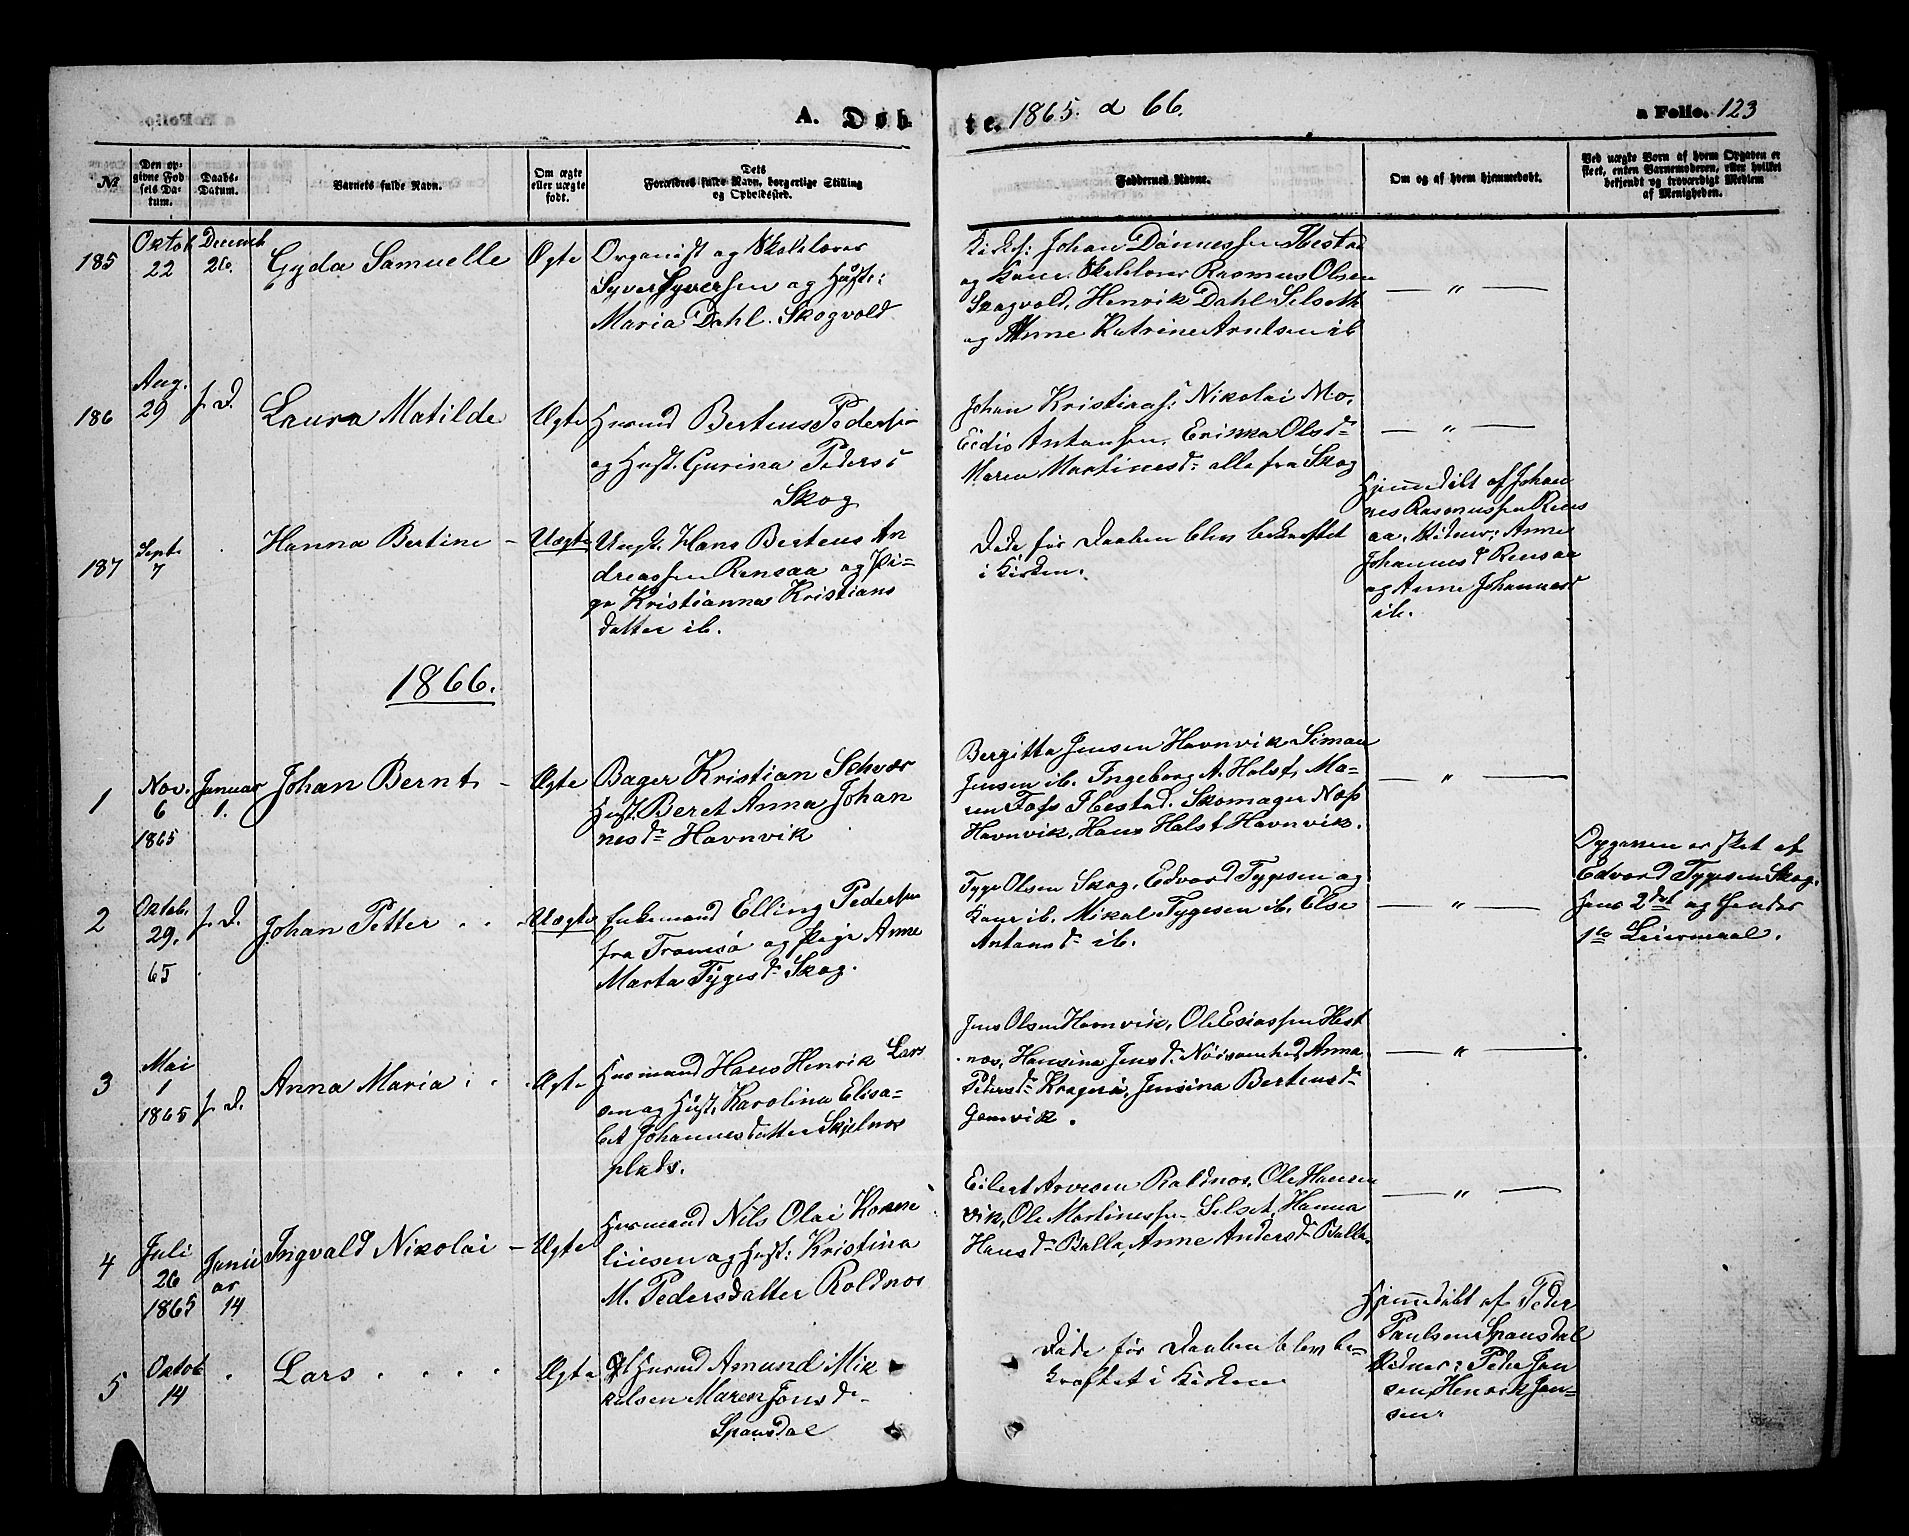 A. Døb
te. 1865. a 66.
a Folio. 123
№
Den op-
givne Fød
sels Da-
tum.
Daabs-
Datum.
Barnets fulde Navn.
Om ægte
eller uægte
født.
Dets
Forældres fulde Navn, borgerlige Stilling
og Opholdssted.
Faddernes Navne.
Om og af hvem hjemmedøbt.
Ved uægte Børn af hvem Opgaven er
skeet, enten Barnemoderen, eller hvilket
bekjendt og troværdigt Medlem
af Menigheden.
185
Oktob
22
Decemb
26.
Gyda Samuelle
Ægte
Organist og Skolelærer
Syver Syversen og Hust:
Maria Dahl. Skogvold
Johan Dønnessen Ibestad
og Kone. Skolelærer Rasmus Olsen
Skogvold, Henrik Dahl Selseth
og Anne Katrine Arntsen ib
— " —
186
Aug.
29
f. D.
Laura Matilde
Ægte
Husmd Berteus Pedersen
og Hust. Gurina Peders:
Skog
Johan Kristians: Nikolai Mo.
Eidis Antonsen. Erikka Olsdr
Maren Martinesdr alle fra Skog
— " —
187
Sept.
7
Hanna Bertine –
Uægte
Ungk. Hans Berteus An
dreassen Rensaa og Pi-
ge Kristianna Kristians
datter ib.
Døde før Daaben blev bekræftet
i Kirken.
Hjemmedøbt af Johan
nes Rasmussen Rens
aa. Vidner: Anne
Johannesd Rensaa
og Anne Johannesd
ib.
1866.
1
Nov.
6
1865
Januar
1.
Johan Bernt –
Ægte
Bager Kristian Schvær
Hust. Beret Anna Johan
nesdr Havnvik
Bergitta Jensen Havnvik Simon
Jensen ib. Ingeborg A. Holst, Ma-
ren Foss Ibestad. Skomager Næss
Havnvik, Hans Holst Havnvik.
— " —
2
Oktob.
29.
65
f. D.
Johan Petter . .
Uægte
Enkemand Elling Pedersen
fra Tromsø og Pige Anne
Marta Tygesdr Skog.
Tyge Olsen Skog. Edvard Tygesen og
Kone ib. Mikal Tygesen ib. Else
Antonsdr ib.
— " —
Opgaven er sket af
Edvard Tygesen Skog.
Hans 2det og Hendes
1te Leiermaal.
3
Mai
1
1865
f. D.
Anna Maria . .
Ægte
Husmand Hans Henrik Lars
sen og Hust. Karolina Elisa-
bet Johannesdatter Skjelnes
plads.
Jens Olsen Havnvik, Ole Esiassen Hest
nes, Hansina Jensd. Nøisomhed Anna
Pedersdr Kragerø, Jensina Berteusdr
Hamnvik.
— " —
4
Juli
26
1865
Janu
ar
14
Ingvald Nikolai –
Ægte
Husmand Nils Olai Korne
liusen og Hust: Kristina
M. Pedersdatter Roldnes
Eilert Arvesen Roldnes, Ole Hansen
vik, Ole Martinessen Selset, Hanna
Hansdr Balla, Anne Andersdr Balla.
— " —
5
Oktob
14
Lars . . . .
Ægte
Husmd Amund Mik
kelsen Maren Jonsdr
Spansdal
Døde før Daaben blev be-
kræftet i Kirken
Hjemmedøbt af Peder
Paulsen Spansdal
Vidner: Peder Jon
sen, Henrik Jon-
sen.